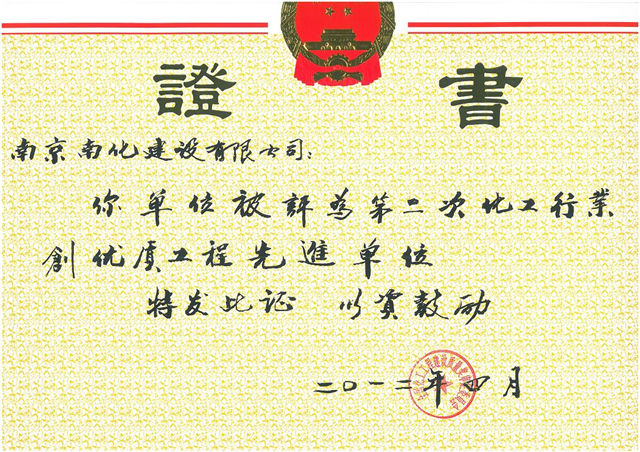 證書
南京南化建设有限公司:
你單位被評為第二次化工行業
創优质工程先進單位
特发此证 以资鼓励
二〇一二年四月